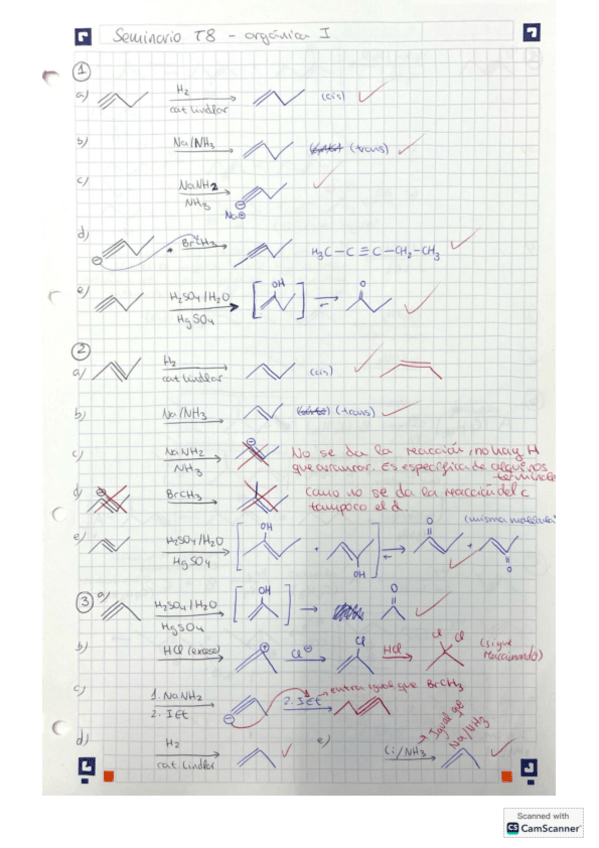 Seminario T8 - orgánica I
①
a) H₂
cat Lindlar
(cis)
b) Na/NH₃
(trans)
c) NaNH₂
NH₃
⊖
Na⊕
d) ⊖
BrCH₃
H₃C-C≡C-CH₂-CH₃
e) H₂SO₄/H₂O
HgSO₄
OH
O
②
a) H₂
cat Lindlar
(cis)
b) Na/NH₃
(trans)
c) NaNH₂
NH₃
⊖
No se da la reacción, no hay H
que arrancar. Es específica de alquinos
terminales
d) BrCH₃
Como no se da la reacción del c
tampoco el d.
e) H₂SO₄/H₂O
HgSO₄
OH
+
OH
O
+
O
(misma molécula)
③
a) H₂SO₄/H₂O
HgSO₄
OH
O
b) HCl (exceso)
⊕
Cl⊖
Cl
HCl
Cl Cl
(sigue
reaccionando)
c) 1. NaNH₂
2. IEt
⊖
2. IEt
entra igual que BrCH₃
d) H₂
cat Lindlar
e) Li/NH₃
Igual que
Na/NH₃
Scanned with
CS CamScanner